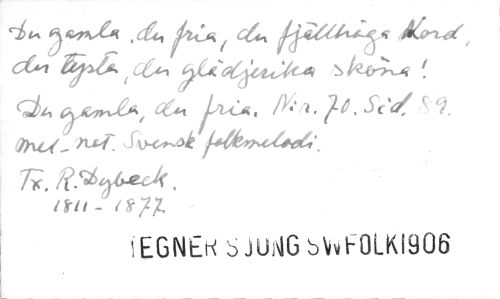 Du gamla, du fria, du fjällhöga Nord,
du tysta, du glädjerika sköna!
Du gamla, du fria. N:r. 70. Sid. 89.
mel-not. Svensk folkmelodi.
Tx. R. Dybeck.
1811 - 1877
TEGNER S JUNG SWFOLK1906